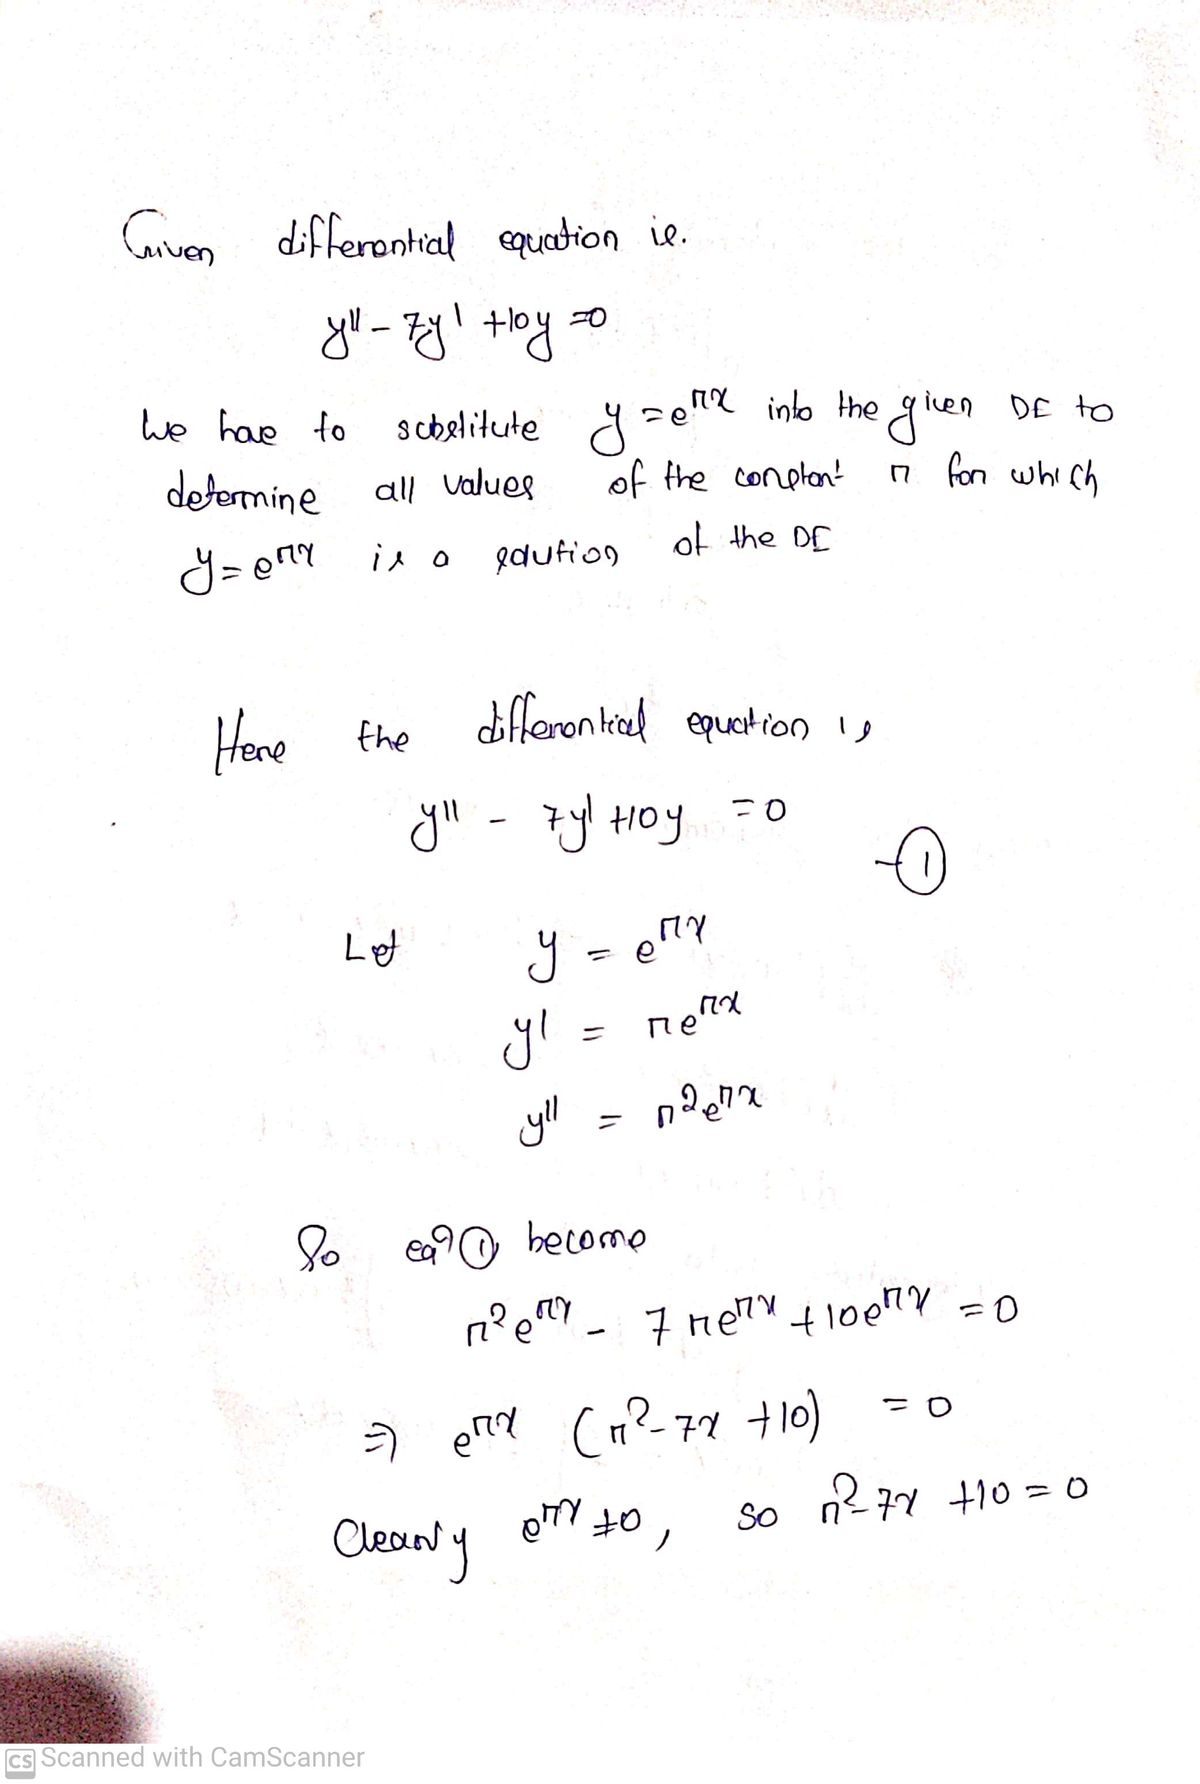 Given differential equation ie.
y'' - 7y' +10y =0
We have to substitute y = e^rx into the given DE to
determine all values of the constant r for which
y = e^rx is a solution of the DE
Here the differential equation is
y'' - 7y' +10y = 0
-①
Let y = e^rx
y' = re^rx
y'' = r²e^rx
So eqn ① become
r²e^rx - 7re^rx + 10e^rx = 0
⇒ e^rx (r² - 7x + 10) = 0
Clearly e^rx ≠ 0, so r² - 7x + 10 = 0
CS Scanned with CamScanner